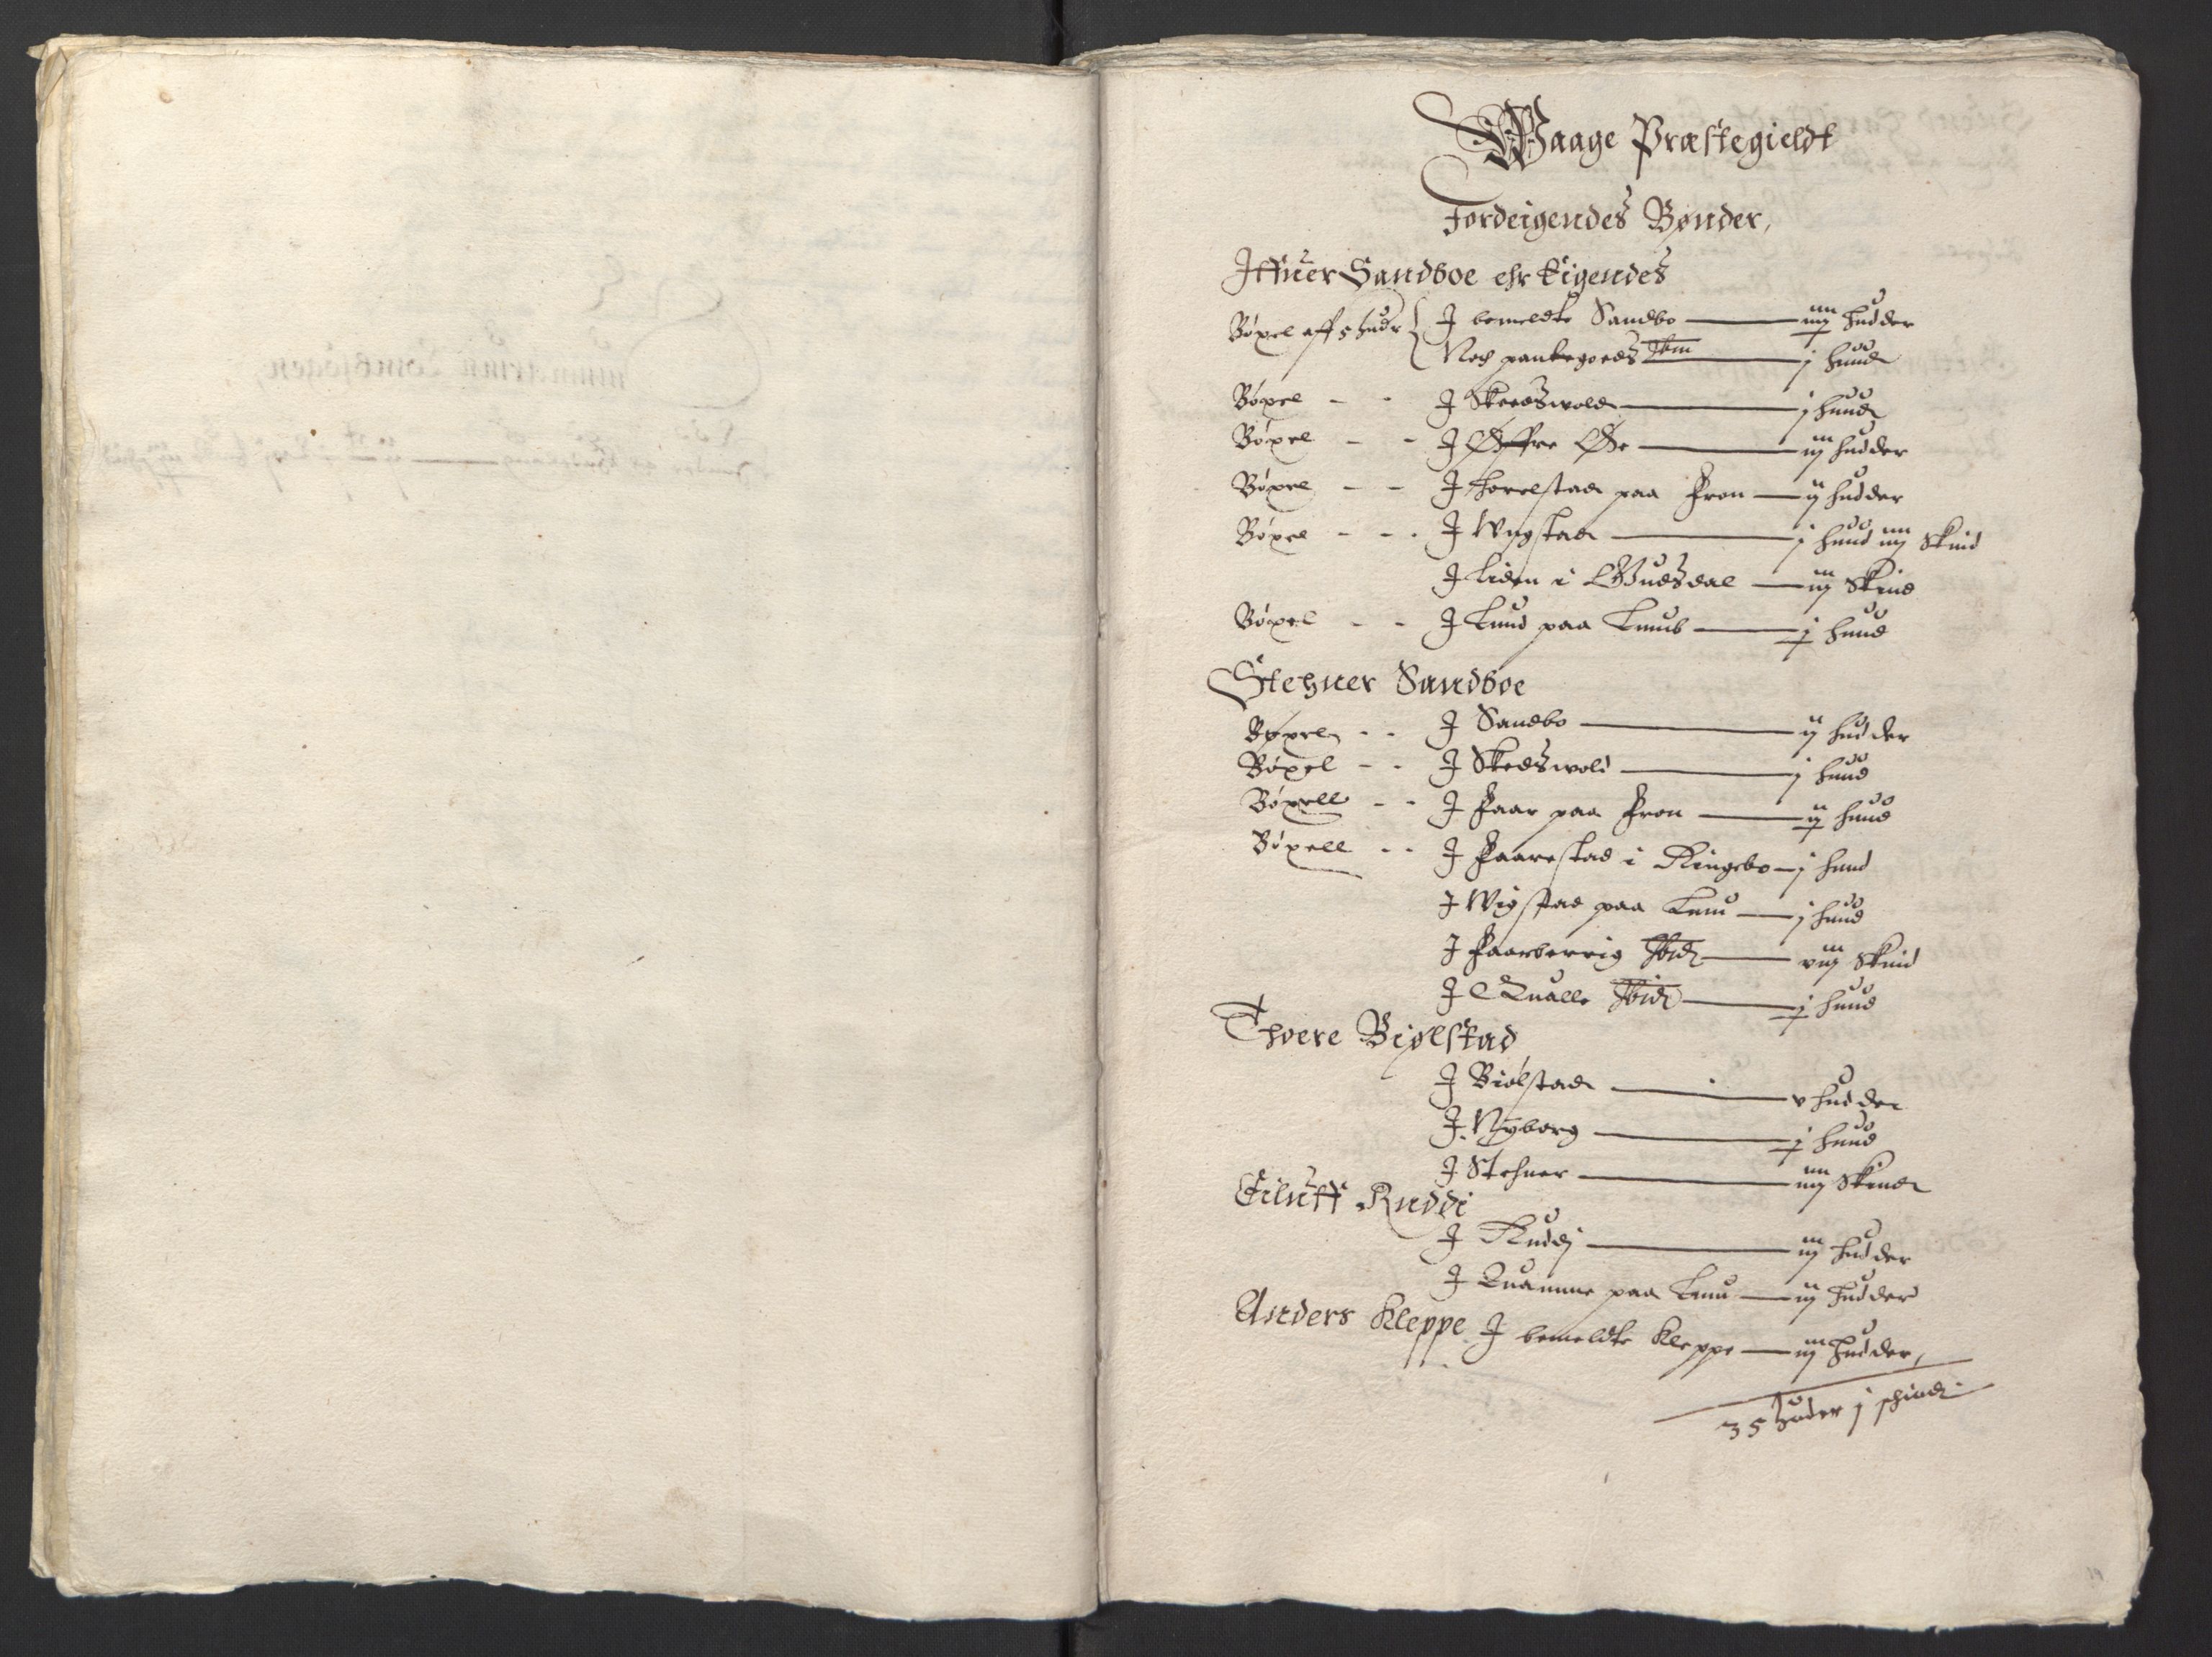 Waage Præstegieldt
Jordeigendes Bønder,
Iffuer Sandboe ehr Eigendes
Bøxel aff 5 hudr { J bemeldte Sandbo — iiij hudder
Noch pantegoeds Ibm — j huud
Bøxel - - J Skeedswold — j huud
Bøxel - - J Øffre Øe — iij hudder
Bøxel - - J Forelstad paa Fron — ij hudder
Bøxel - - - J Wigstad — j huud iiij Skind
J Liden i Gudsdal — iij Skind
Bøxel - - J Lund paa Lomb — j huud
Stehner Sandboe
Bøxel - - J Sandbo — ij hudder
Bøxel - - J Skedswold — j huud
Bøxell - - J Faar paa Fron — ij huud
Bøxell - - J Faarestad i Ringebo — j huud
J Wigstad paa Lom — j huud
J Faarberrig Ibid — viij Skind
J Qualle Ibid — j huud
Thoere Biølstad
J Biølstad — v hudder
J Nyborg — j huud
J Stehner — iiij Skind
Eiluff Ruddi
J Rudj — iij hudder
J Quamme paa Lom — iij hudder
Anders Kleppe J bemeldte Kleppe — iij hudder,
35 huder j schind